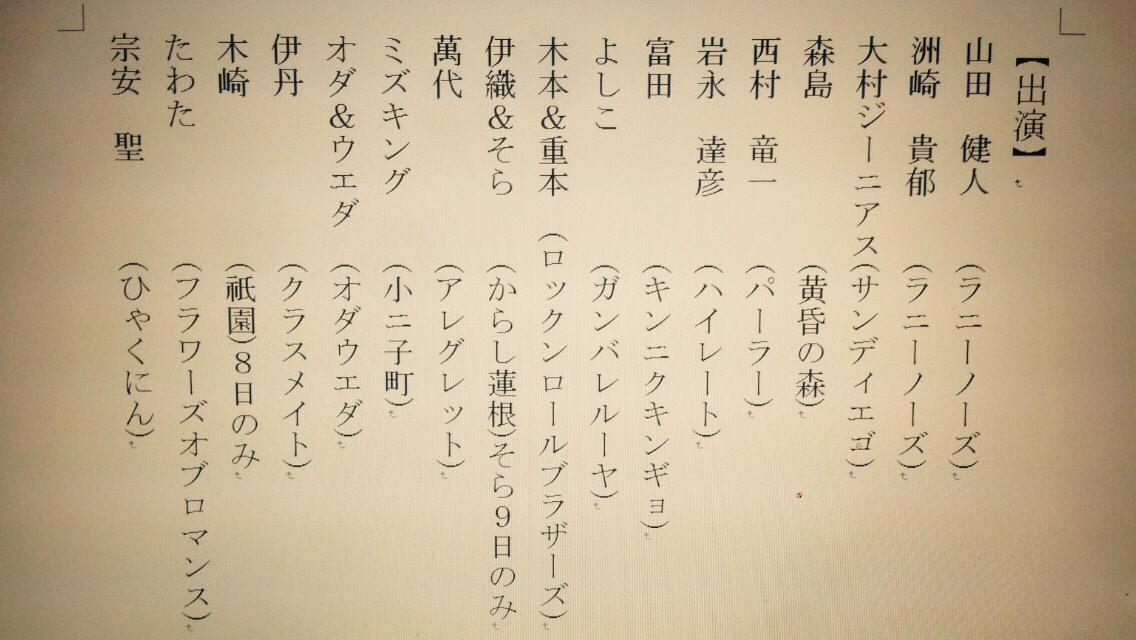 【出演】
山田　健人　　（ラニーノーズ）
洲崎　貴郁　　（ラニーノーズ）
大村ジーニアス（サンディエゴ）
森島　　　　　（黄昏の森）
西村　竜一　　（パーラー）
岩永　達彦　　（ハイレート）
富田　　　　　（キンニクキンギョ）
よしこ　　　　（ガンバレルーヤ）
木本&重本　（ロックンロールブラザーズ）
伊織&そら　　（からし蓮根）そら９日のみ
萬代　　　　　（アレグレット）
ミズキング　　（小ニ子町）
オダ&ウエダ　（オダウエダ）
伊丹　　　　　（クラスメイト）
木崎　　　　　（祇園）８日のみ
たわた　　　　（フラワーズオブロマンス）
宗安　聖　　　（ひゃくにん）